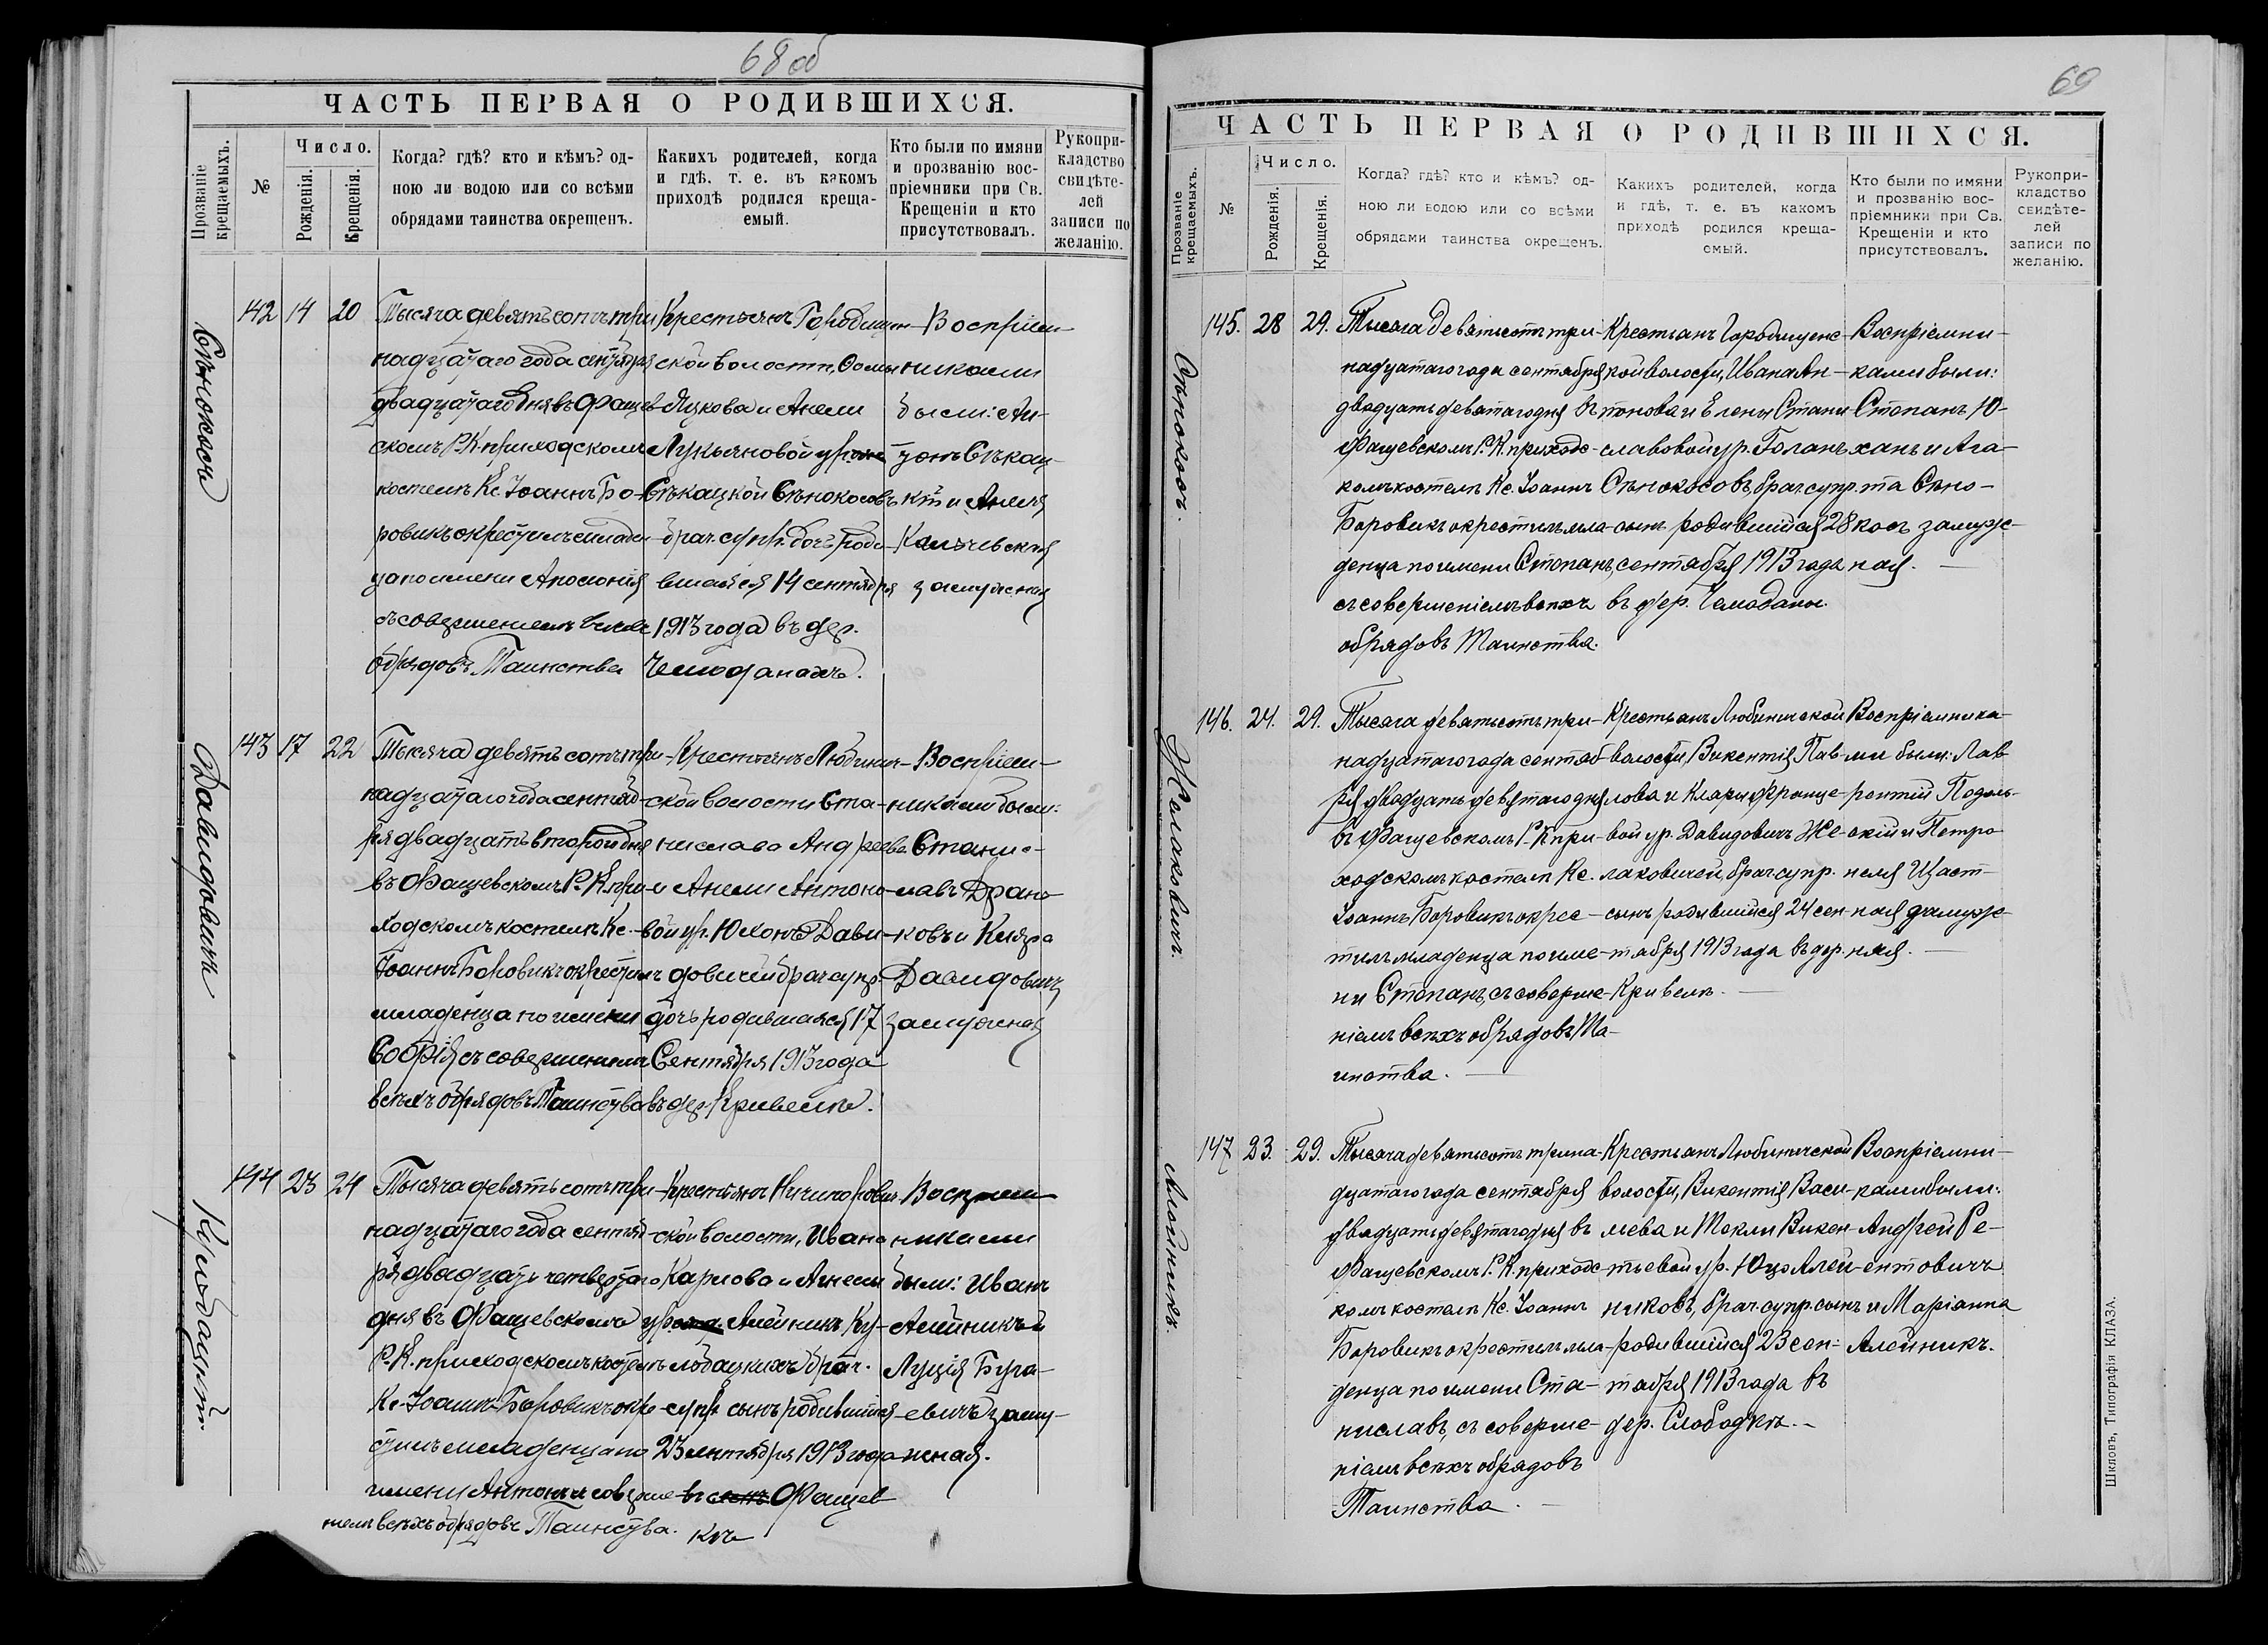 68 об
ЧАСТЬ ПЕРВАЯ О РОДИВШИХСЯ.
Прозваніе крещаемыхъ.
№
Число.
Рожденія.
Крещенія.
Когда? гдѣ? кто и кѣмъ? од-
ною ли водою или со всѣми
обрядами таинства окрещенъ.
Какихъ родителей, когда
и гдѣ, т. е. въ какомъ
приходѣ родился креща-
емый.
Кто были по имяни
и прозванію вос-
пріемники при Св.
Крещеніи и кто
присутствовалъ.
Рукопри-
кладство
свидѣте-
лей
записи по
желанію.
Сѣнокосъ
142 14 20
Тысяча девятьсотъ три
надцатаго года сентября
двадцатаго дня въ Фащев
скомъ Р. К. приходскомъ
костелѣ Кс. Іоаннъ Бо-
ровикъ окрестилъ младен
ца по имени Аполонія
съ совершеніемъ всѣхъ
обрядовъ Таинства
Крестьянъ Городищен
ской волости, Фомы
Яцкова и Анели
Лукьяновой ур.
Сѣкацкой Сѣнокосовъ
брач. супр. дочь роди-
вшаяся 14 сентября
1913 года въ дер.
Чемоданахъ.
Воспріем-
никами
были: Ан-
тонъ Сѣкац-
кій и Анеля
замужняя
Давидовичъ
143 17 22
Тысяча девятьсотъ три-
надцатаго года сентяб-
ря двадцать второй дня
въ Фащевскомъ Р. К. при-
ходскомъ костелѣ Кс.
Іоаннъ Боровикъ окрестилъ
младенца по имени
Софія съ совершеніемъ
всѣхъ обрядовъ Таинства
Крестьянъ Любинич-
ской волости Ста-
нислава Андреева
и Анели Антоно-
вой ур. Юхонъ Дави-
довичей брач. супр.
дочь родившаяся 17
Сентября 1913 года
въ дер. Кривели.
Воспріем-
никами были:
Станис-
лавъ Дран-
ковъ и Клара
Давидовичъ
замужняя
Кулодацкій.
144 23 24
Тысяча девятьсотъ три-
надцатаго года сентяб-
ря двадцать четвертаго
дня въ Фащевскомъ
Р. К. приходскомъ костелѣ
Кс. Іоаннъ Боровикъ окре-
стилъ младенца по
имени Антонъ съ соверше
ніемъ всѣхъ обрядовъ Таинства.
Крестьянъ
ской волости, Ивана
Карлова и Агнесы
ур. Алейникъ Ку-
лобацкихъ брач.
супр. сынъ родившійся
23 сентября 1913 года
въ Фащев
кѣ
Воспріем-
никами
были: Иванъ
Алейникъ и
Луція Буга-
евичъ заму-
жная.
69
ЧАСТЬ ПЕРВАЯ О РОДИВШИХСЯ.
Прозваніе крещаемыхъ.
№
Число.
Рожденія.
Крещенія.
Когда? гдѣ? кто и кѣмъ? од-
ною ли водою или со всѣми
обрядами таинства окрещенъ.
Какихъ родителей, когда
и гдѣ, т. е. въ какомъ
приходѣ родился креща-
емый.
Кто были по имяни
и прозванію вос-
пріемники при Св.
Крещеніи и кто
присутствовалъ.
Рукопри-
кладство
свидѣте-
лей
записи по
желанію.
Сѣнокосъ.
145. 28 29.
Тысяча девятьсотъ три-
надцатаго года сентября
двадцать девятаго дня въ
Фащевскомъ Р. К. приходс-
комъ костелѣ Кс. Іоаннъ
Боровикъ окрестилъ мла-
денца по имени Степанъ,
съ совершеніемъ всѣхъ
обрядовъ Таинства.
Крестьянъ Городищенс-
кой волости, Ивана Ан-
тонова и Елены Стани-
славовой ур. Голанъ
Сѣнокосовъ, брач. супр.
сынъ родившійся 28
сентября 1913 года
въ дер. Чемоданы.
Воспріемни-
ками были:
Степанъ Ю-
ханъ и Ага-
та Сѣно-
косъ замуж-
ная.
Желаковичъ.
146. 24. 29.
Тысяча девятьсотъ три-
надцатаго года сентяб-
ря двадцать девятаго дня
въ Фащевскомъ Р. К. при-
ходскомъ костелѣ Кс.
Іоаннъ Боровикъ окрес-
тилъ младенца по име-
ни Степанъ, съ соверше-
ніемъ всѣхъ обрядовъ Та-
инства.
Крестьянъ Любиничской
волости, Викентія Пав-
лова и Клары Францо-
вой ур. Давидовичъ Же-
лаковичей, брач. супр.
сынъ родившійся 24 сен-
тября 1913 года въ дер.
Кривели.
Воспріемника-
ми были: Лав-
рентій Подоль-
скій и Петро-
неля Щаст-
ная замуж-
няя.
Алейникъ.
147 23. 29.
Тысяча девятьсотъ трина-
дцатаго года сентября
двадцать девятаго дня въ
Фащевскомъ Р. К. приходс-
комъ костелѣ Кс. Іоаннъ
Боровикъ окрестилъ мла-
денца по имени Ста-
ниславъ, съ соверше-
ніемъ всѣхъ обрядовъ
Таинства.
Крестьянъ Любиничской
волости, Викентія Васи-
льева и Теклы Викен-
тьевой ур. Юцо Алей-
никовъ, брач. супр. сынъ
родившійся 23 сен-
тября 1913 года въ
дер. Слободкѣ.
Воспріемни-
ками были:
Андрей Ре-
ентовичъ
и Маріанна
Алейникъ.
Шкловъ, Типографія КЛАЗА.